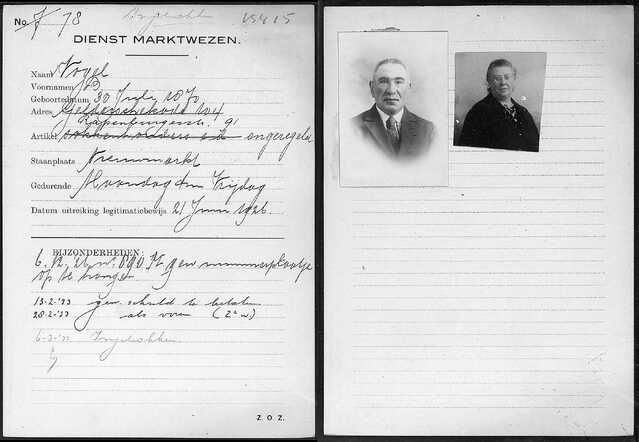 No. 78 Ingetrokken VSH 15
DIENST MARKTWEZEN.
Naam Vogel
Voornamen P
Geboortedatum 30 July 1870
Adres Gelderschekade 104
Rapenburgerstr. 91
Artikel ongeregeld
Staanplaats Nieuwmarkt
Gedurende Maandag t/m Vrijdag
Datum uitreiking legitimatiebewijs 21 Juni 1926.
BIJZONDERHEDEN:
6.12.26 nr. 890 gew. nummerplaatje
op te hangen
13-2-'33 gew. schuld te betalen
28-2-'33 als voren (2e w)
6-3-'33 Ingetrokken
Z. O. Z.